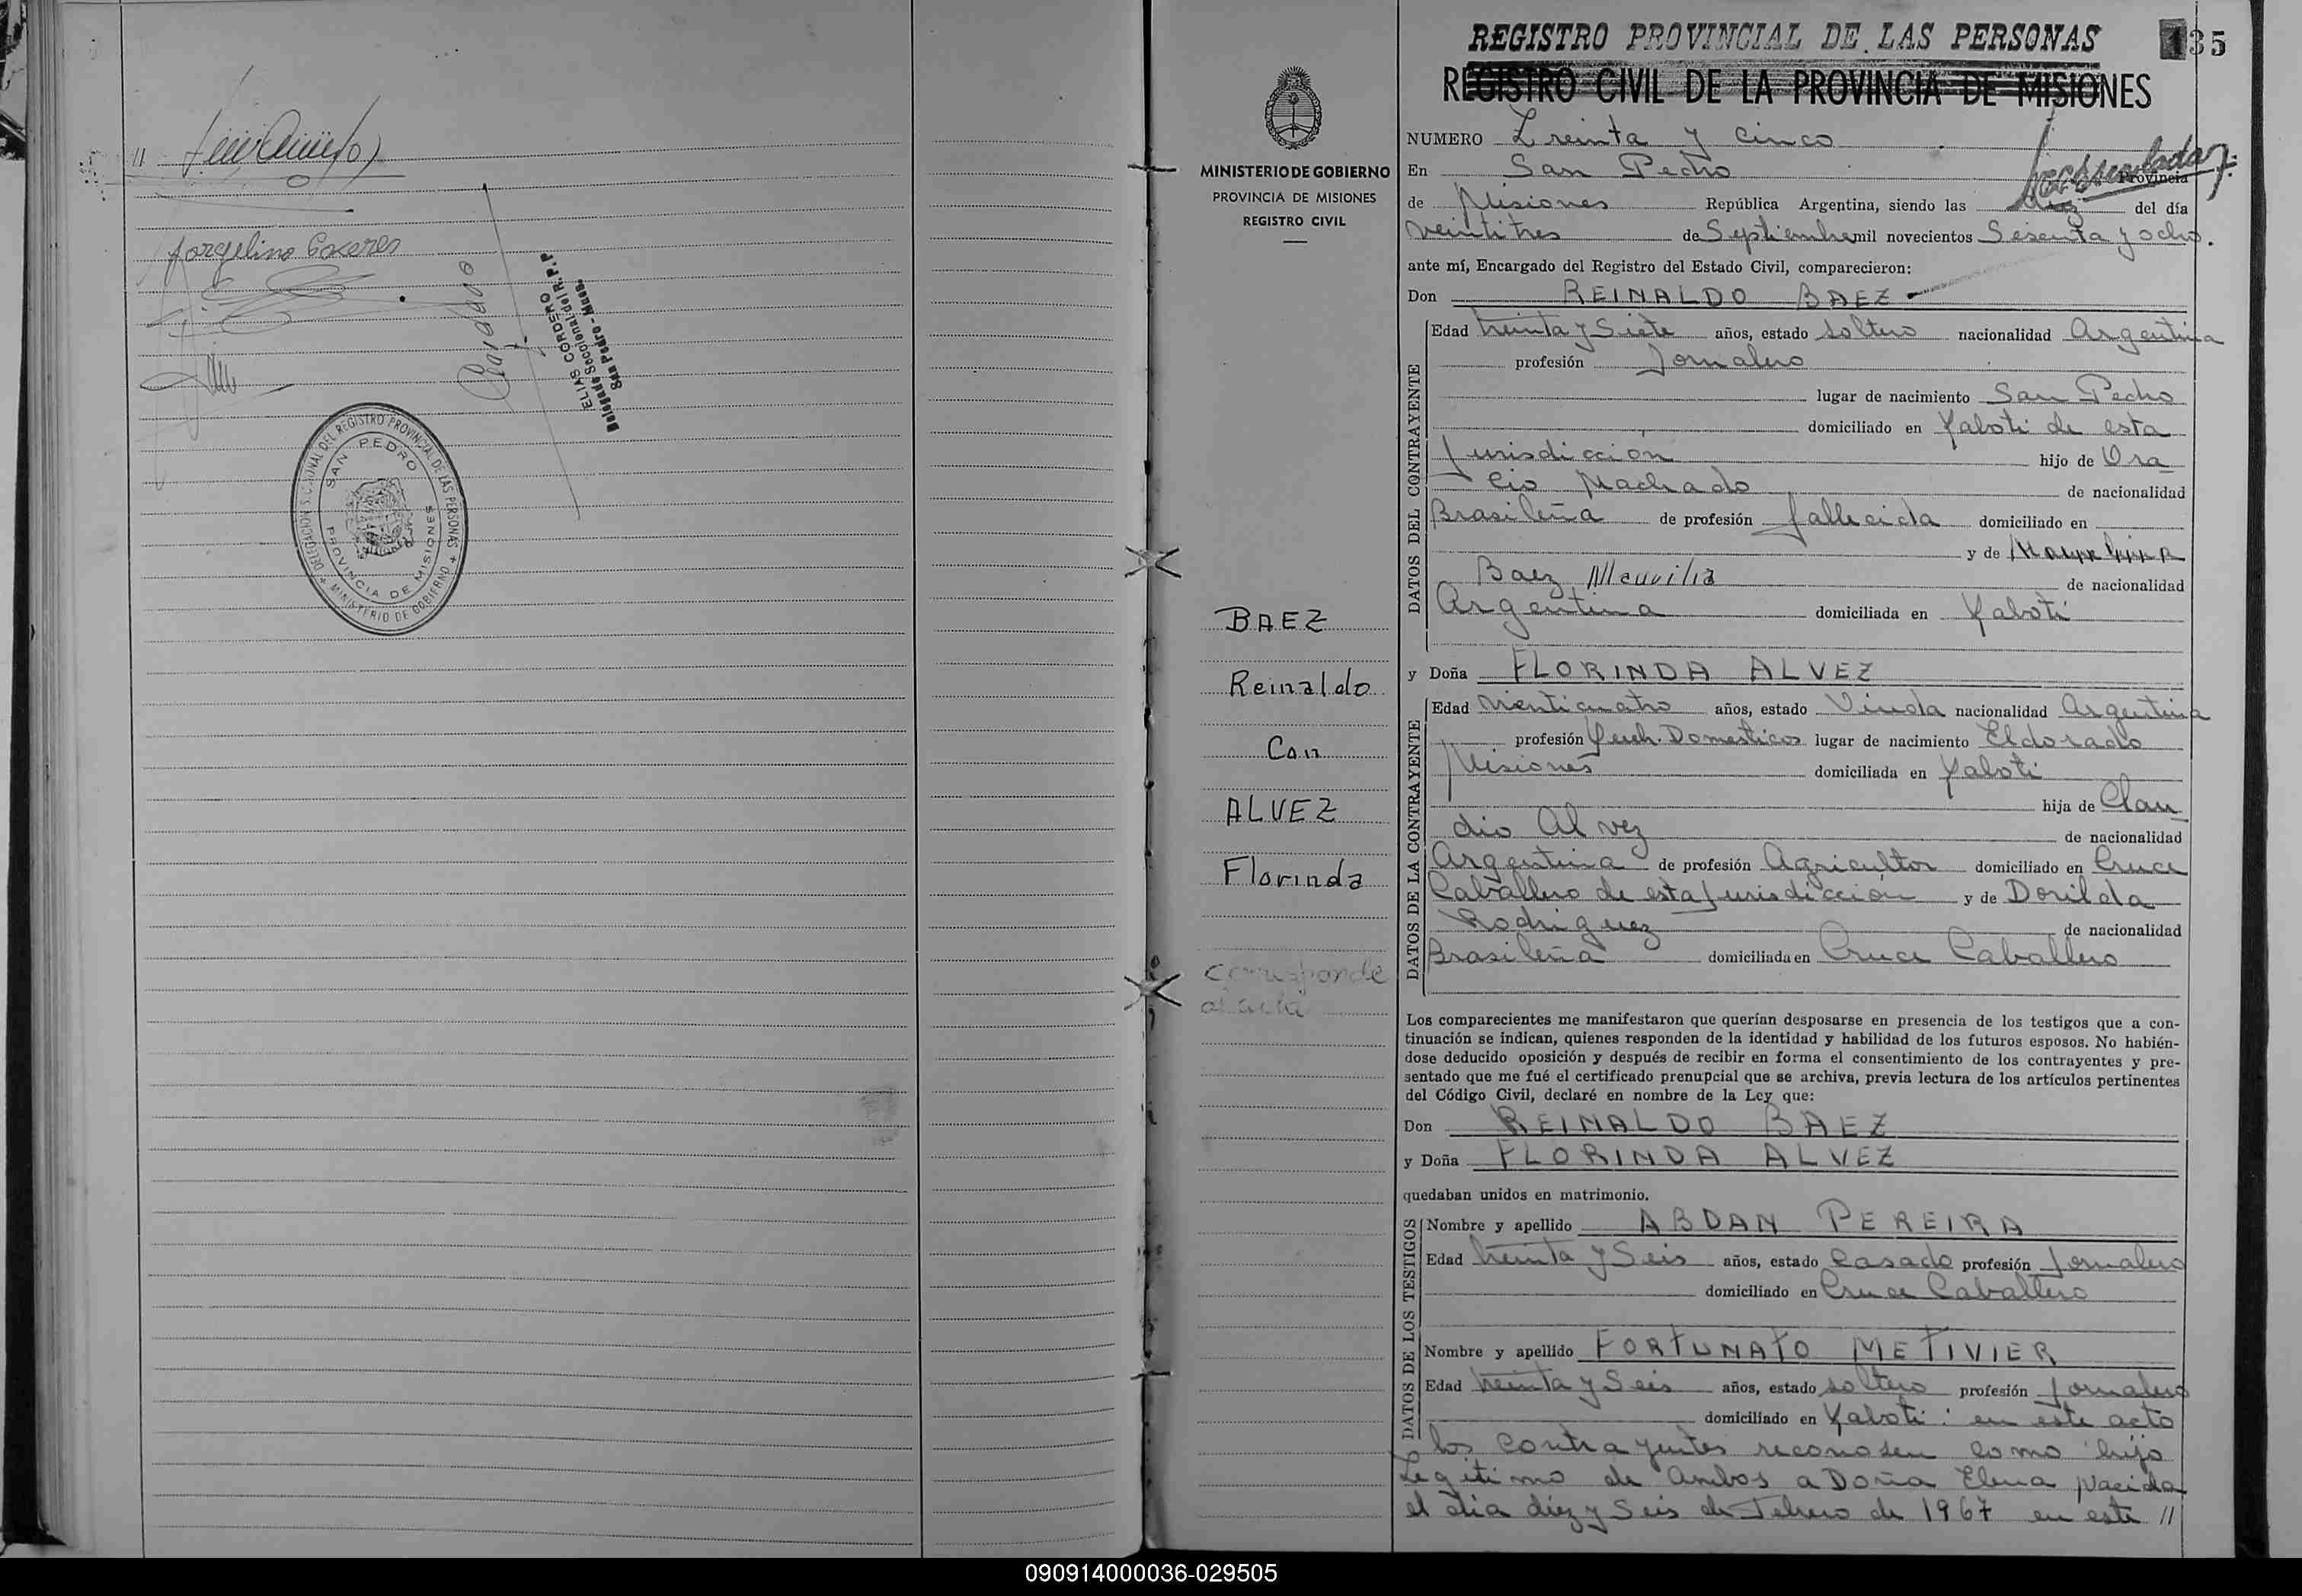 //
Jorgelino Caceres
ELIAS CORDERO
Delegado Seccional del R. P. P.
San Pedro - Mnes.
DELEGACION SECCIONAL DEL REGISTRO PROVINCIAL DE LAS PERSONAS
SAN PEDRO
PROVINCIA DE MISIONES
MINISTERIO DE GOBIERNO
MINISTERIO DE GOBIERNO
PROVINCIA DE MISIONES
REGISTRO CIVIL
BAEZ
Reinaldo
Con
ALVEZ
Florinda
corresponde
al acta
REGISTRO PROVINCIAL DE LAS PERSONAS
135
REGISTRO CIVIL DE LA PROVINCIA DE MISIONES
NUMERO Treinta y Cinco
En San Pedro Provincia
de Misiones República Argentina, siendo las diez del día
veintitres de Septiembre mil novecientos Sesenta y ocho.
ante mí, Encargado del Registro del Estado Civil, comparecieron:
Don REINALDO BAEZ
DATOS DEL CONTRAYENTE
Edad treinta y Siete años, estado soltero nacionalidad Argentina
profesión Jornalero
lugar de nacimiento San Pedro
domiciliado en Yaboti de esta
Jurisdicción hijo de Ora
cio Machado de nacionalidad
Brasileña de profesión fallecida domiciliado en
y de
Baez Maurilia de nacionalidad
Argentina domiciliada en Yaboti
y Doña FLORINDA ALVEZ
DATOS DE LA CONTRAYENTE
Edad vienticuatro años, estado Viuda nacionalidad Argentina
profesión Queh. Domesticos lugar de nacimiento Eldorado
Misiones domiciliada en Yaboti
hija de Clau
dio Alvez de nacionalidad
Argentina de profesión Agricultor domiciliado en Cruce
Caballero de esta Jurisdicción y de Dorilda
Rodriguez de nacionalidad
Brasileña domiciliada en Cruce Caballero
Los comparecientes me manifestaron que querían desposarse en presencia de los testigos que a con-
tinuación se indican, quienes responden de la identidad y habilidad de los futuros esposos. No habién-
dose deducido oposición y después de recibir en forma el consentimiento de los contrayentes y pre-
sentado que me fué el certificado prenupcial que se archiva, previa lectura de los artículos pertinentes
del Código Civil, declaré en nombre de la Ley que:
Don REINALDO BAEZ
y Doña FLORINDA ALVEZ
quedaban unidos en matrimonio.
DATOS DE LOS TESTIGOS
Nombre y apellido ABDAN PEREIRA
Edad treinta y Seis años, estado Casado profesión Jornalero
domiciliado en Cruce Caballero
Nombre y apellido FORTUNATO METIVIER
Edad treinta y Seis años, estado soltero profesión Jornalero
domiciliado en Yaboti: en este acto
los contrayentes reconosen como hijo
Legitimo de ambos a Doña Elena Nacida
el dia diez y Seis de Febrero de 1967 en este //
090914000036-029505